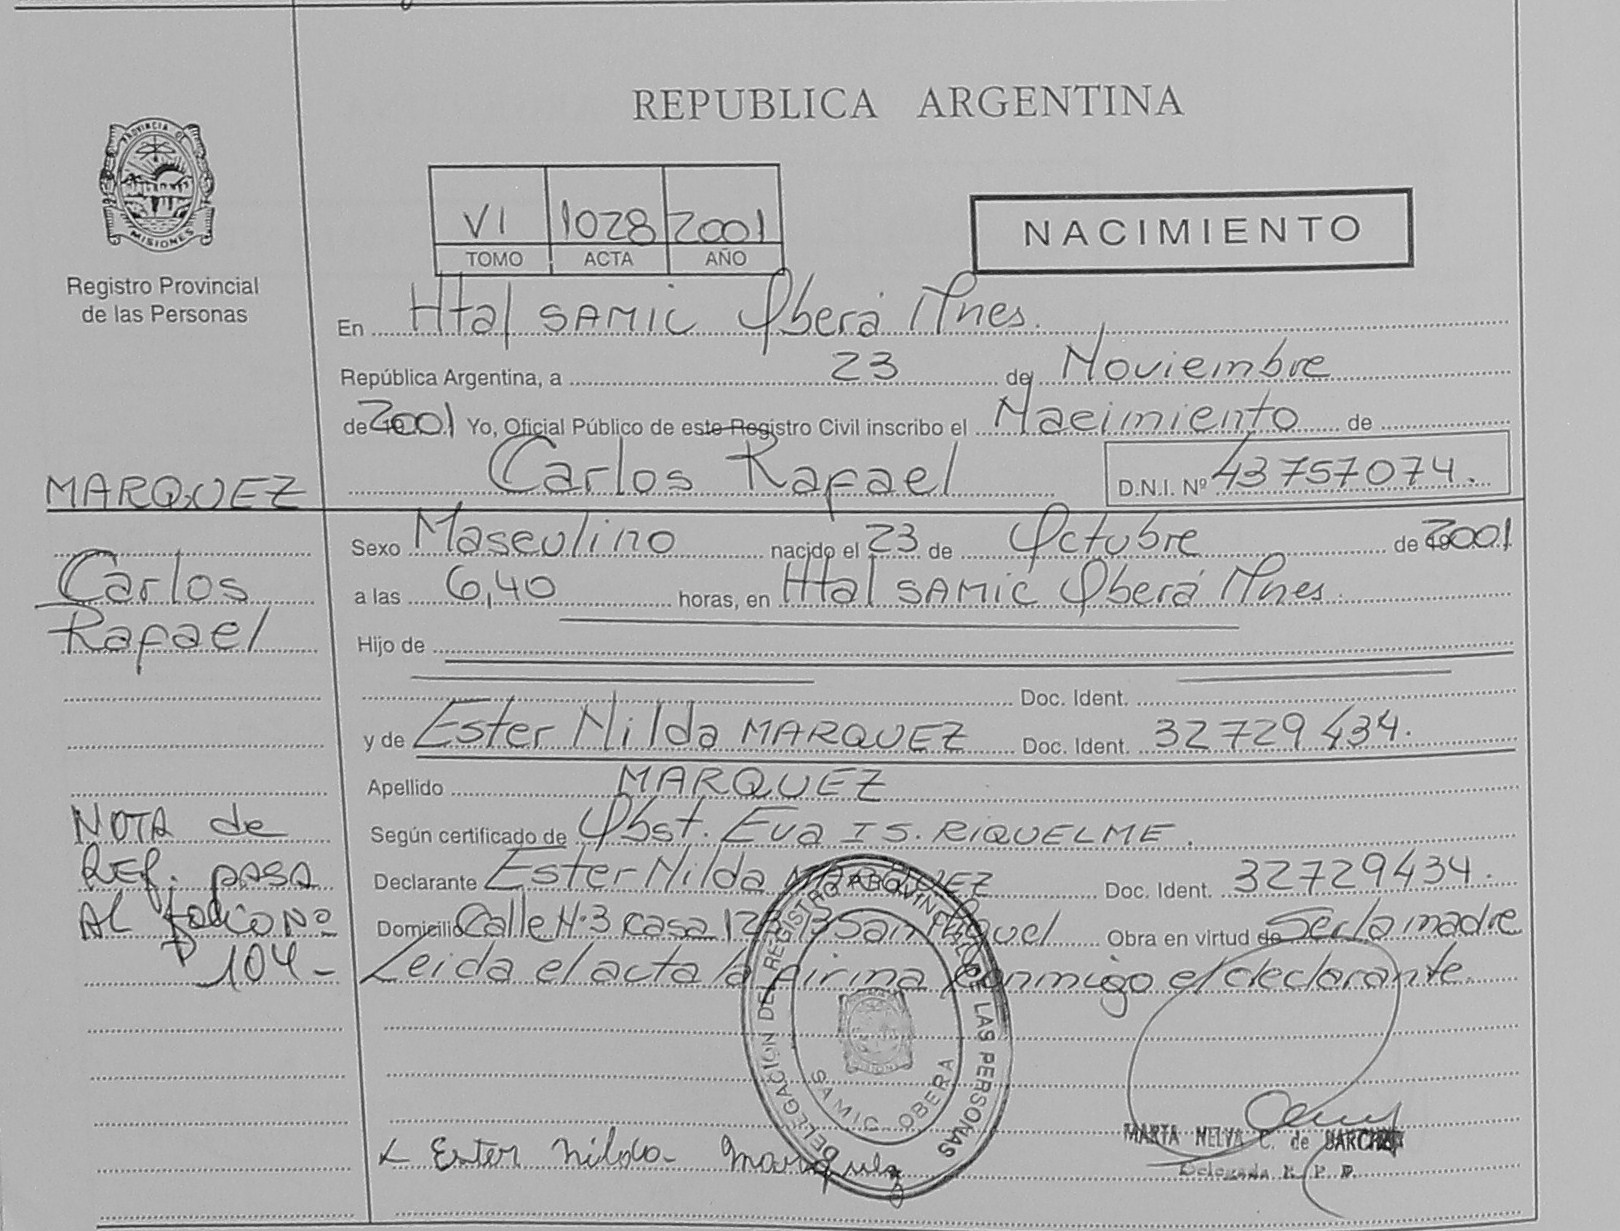 REPUBLICA ARGENTINA
PROVINCIA DE
MISIONES
Registro Provincial
de las Personas
VI 1028 2001
TOMO ACTA AÑO
NACIMIENTO
En Htal SAMIC Oberá Mnes.
República Argentina, a 23 de Noviembre
de 2001 Yo, Oficial Público de este Registro Civil inscribo el Nacimiento de
MARQUEZ
Carlos Rafael D.N.I. Nº 43757074.
Sexo Masculino nacido el 23 de Octubre de 2001
Carlos
Rafael
a las 6,40 horas, en Htal SAMIC Oberá Mnes.
Hijo de
Doc. Ident.
y de Ester Nilda MARQUEZ Doc. Ident. 32729434.
Apellido MARQUEZ
Según certificado de Obst. Eva IS. RIQUELME.
Declarante Ester Nilda MARQUEZ Doc. Ident. 32729434.
Domicilio Calle N·3 casa San Miguel Obra en virtud de Ser la madre
Leida el acta la firma conmigo el declarante.
NOTA de
REF. PASA
AL folio Nº
104-
DELEGACION DEL REGISTRO PROVINCIAL DE LAS PERSONAS
MISIONES
SAMIC OBERA
Ester nilda Marquez
MARTA NELVA C. de
Delegada R. P. P.